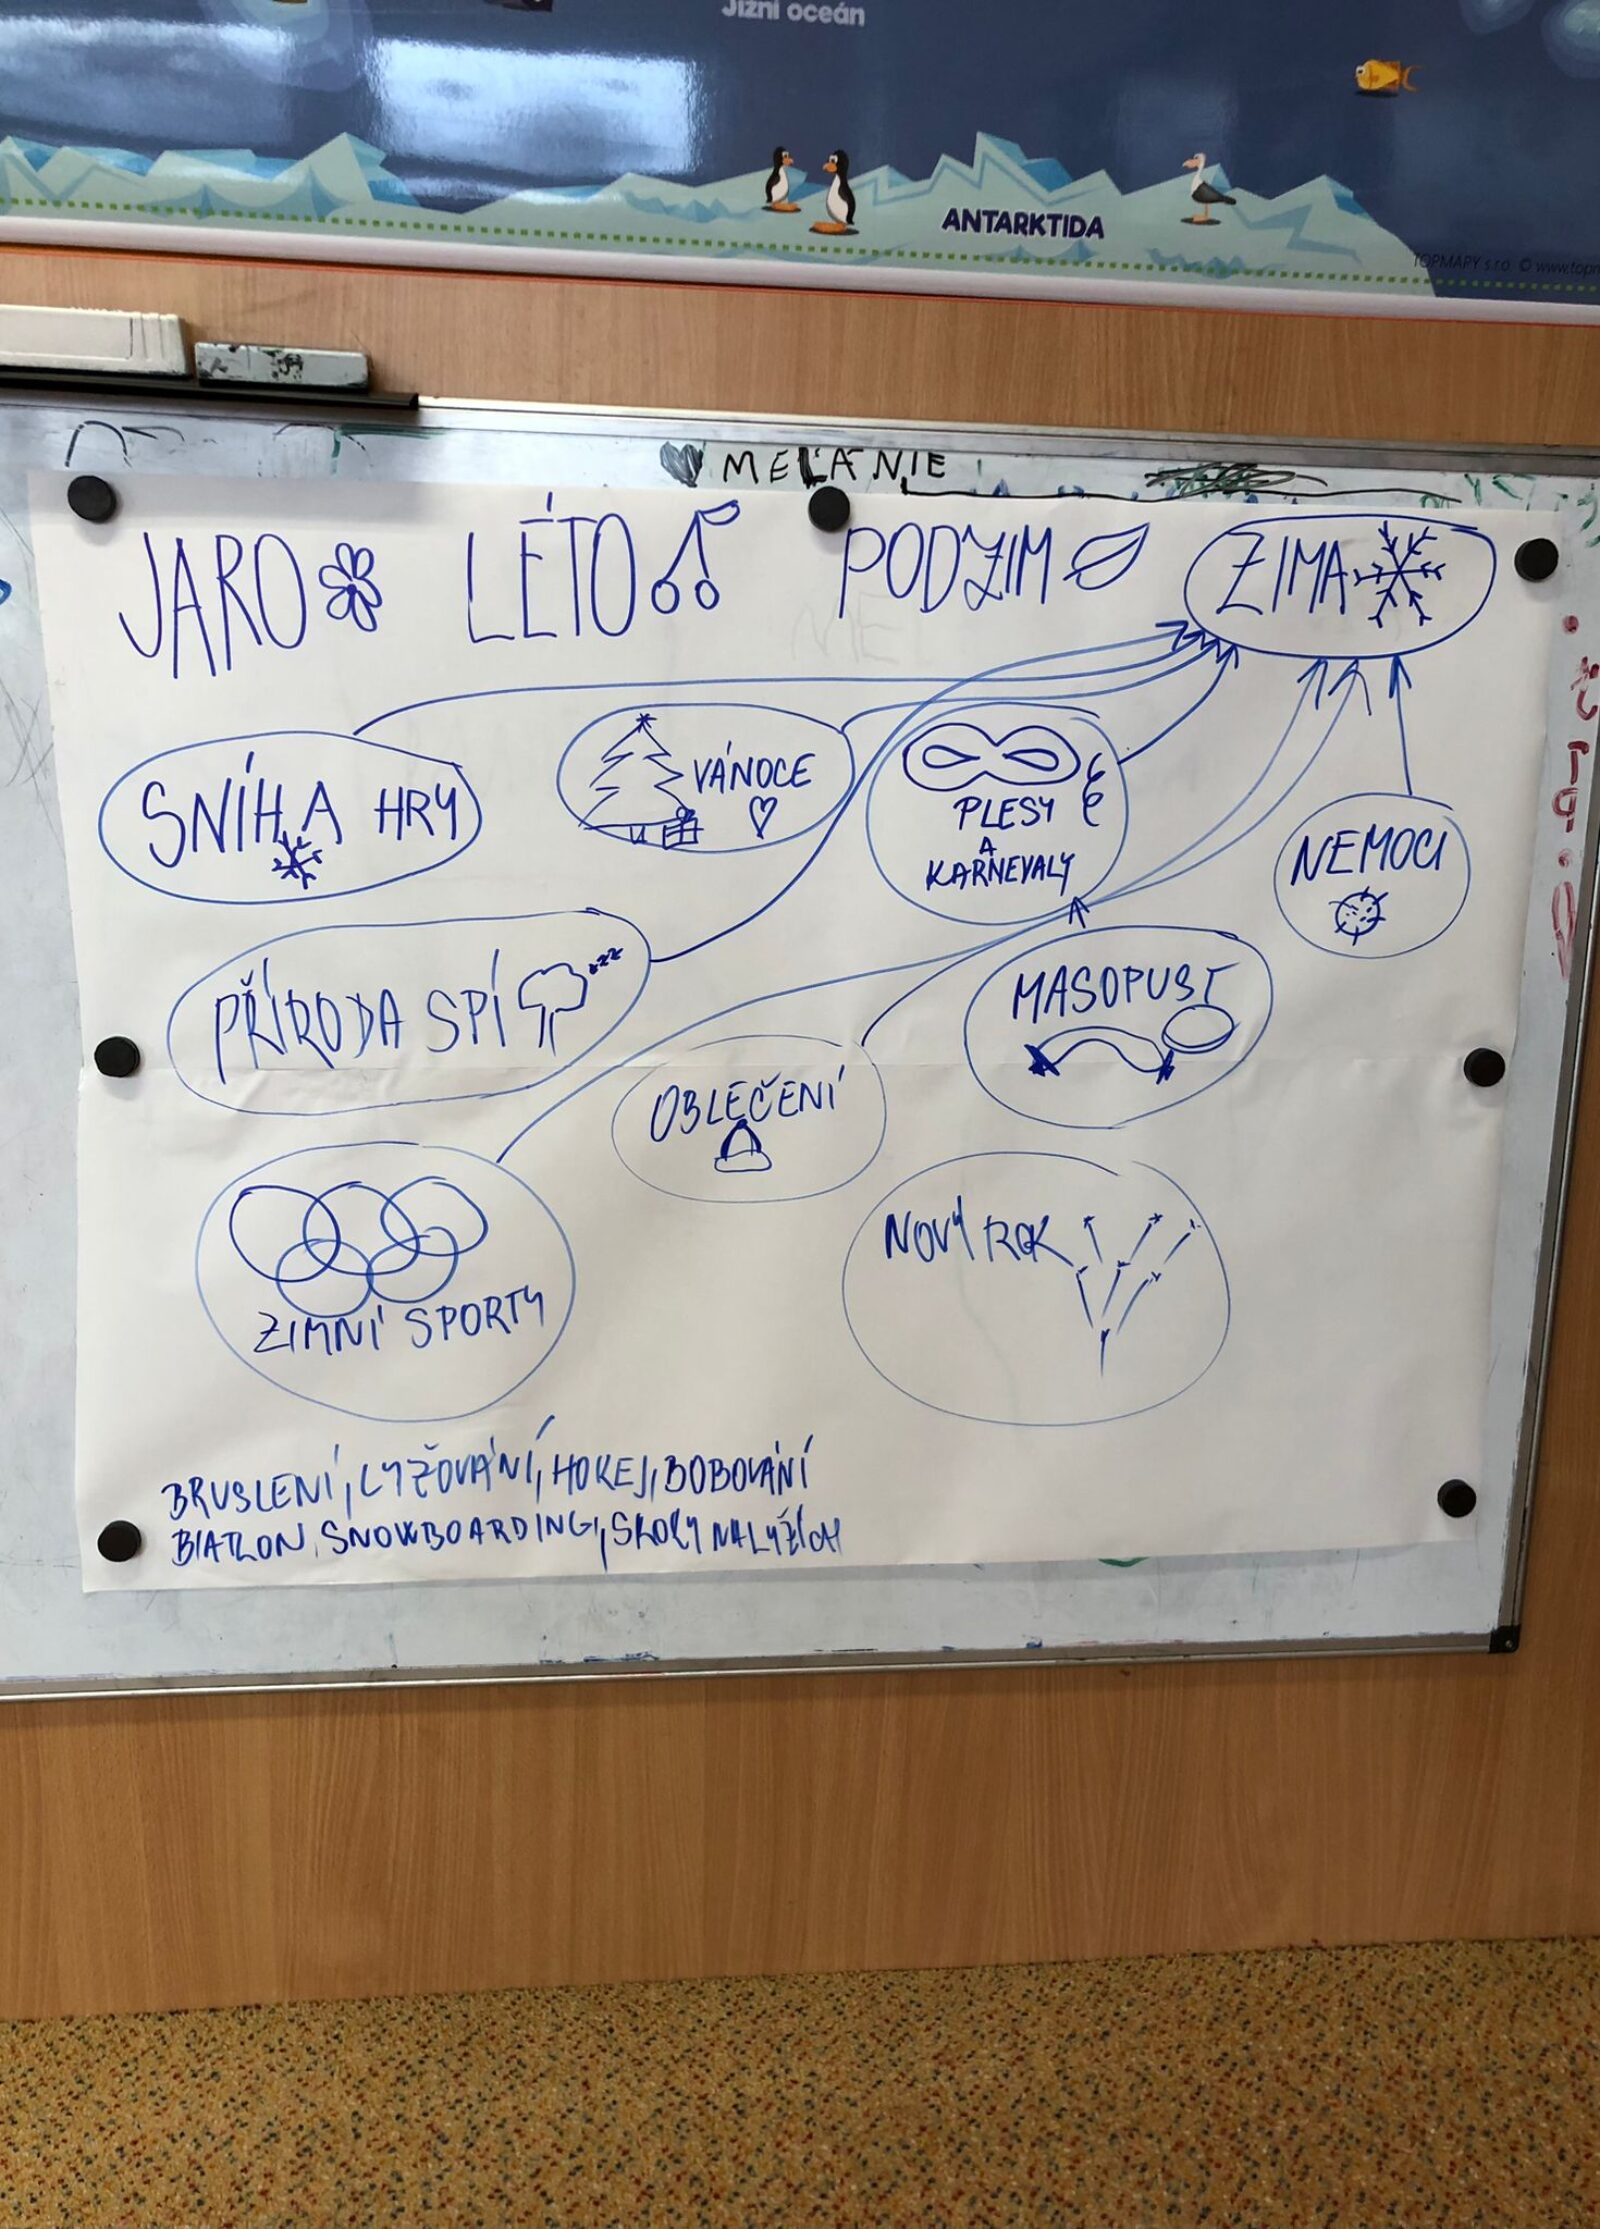 Jižní oceán
ANTARKTIDA
TOPMAPY s.r.o. © www.topm
MELANIE
JARO LÉTO PODZIM ZIMA
SNÍH A HRY
VÁNOCE
PLESY
A
KARNEVALY
NEMOCI
PŘÍRODA SPÍ zzz
MASOPUST
OBLEČENÍ
ZIMNÍ SPORTY
NOVÝ ROK
BRUSLENÍ, LYŽOVÁNÍ, HOKEJ, BOBOVÁNÍ
BIATLON, SNOWBOARDING, SKOKY NA LYŽÍCH